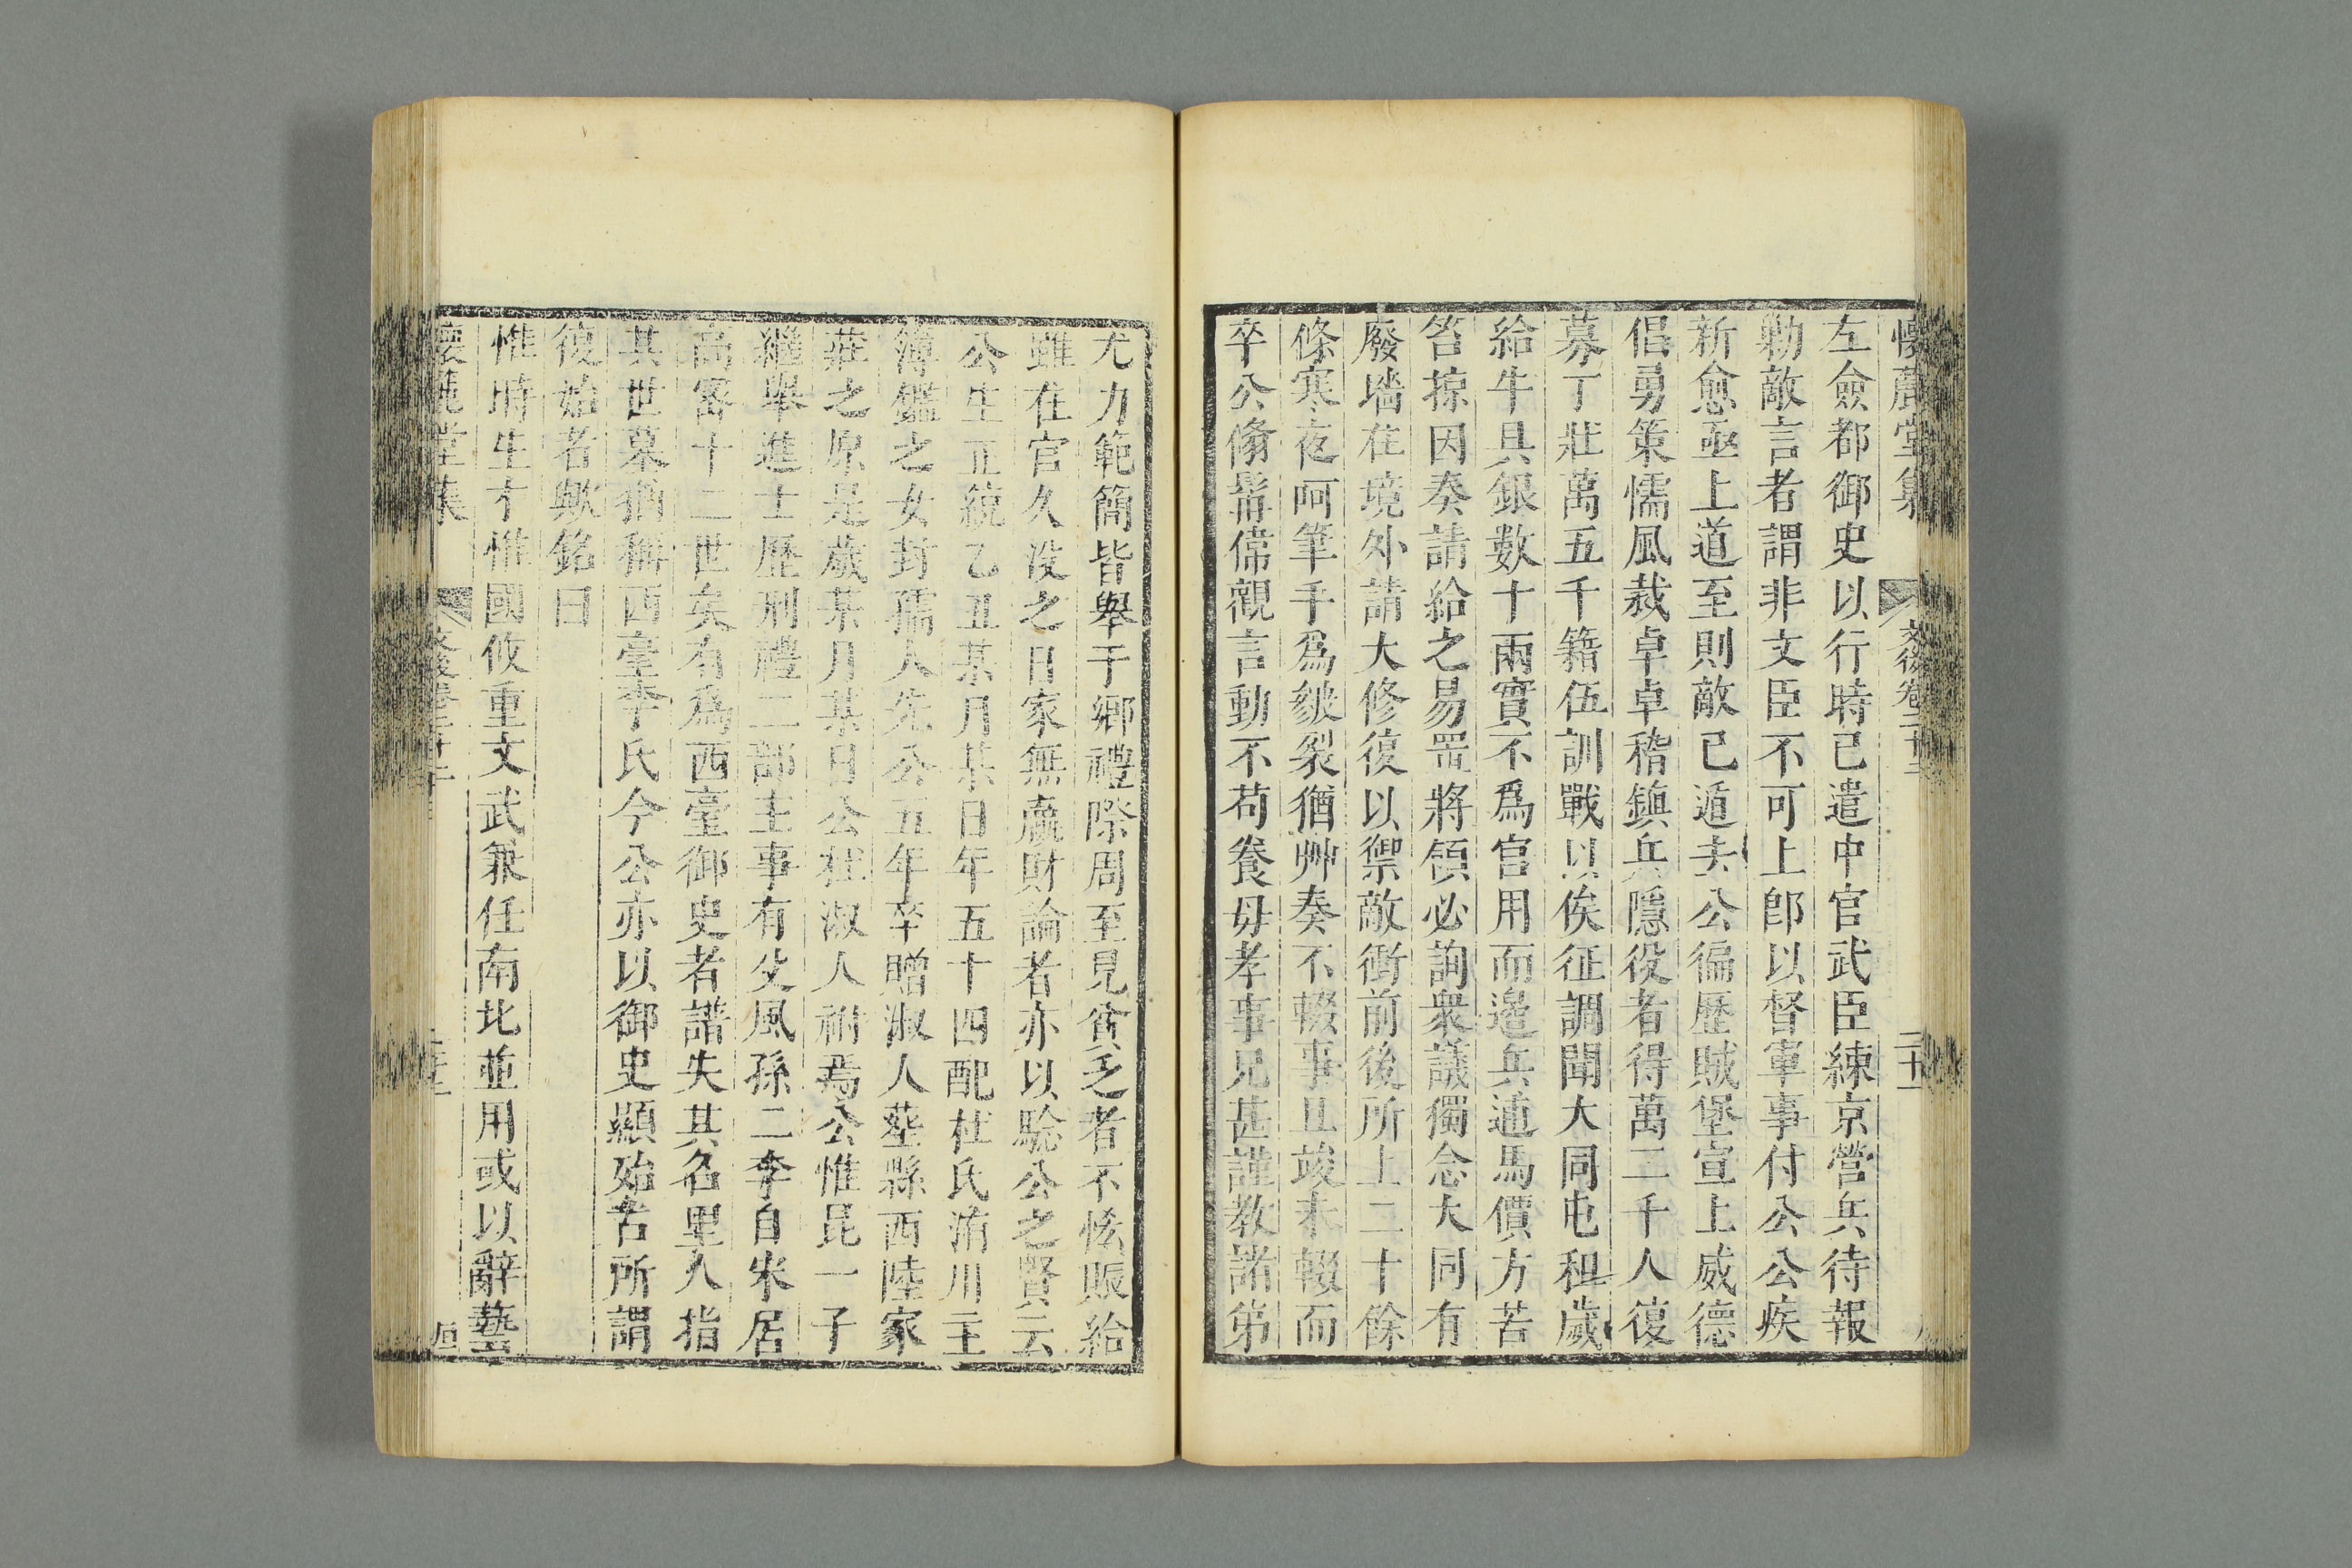 懷麓堂集 文後卷二十三
左僉都御史以行時已遣中官武臣練京營兵待報
勦敵言者謂非文臣不可上卽以督軍事付公公疾
新愈亟上道至則敵已遁去公徧歷賊堡宣上威德
倡勇策懦風裁卓卓稽鎮兵隱役者得萬二千人復
募丁壯萬五千籍伍訓戰以俟征調聞大同屯租歲
給牛具銀數十兩實不爲官用而邊兵逋馬價方苦
笞掠因奏請給之易置將領必詢衆議獨念大同有
廢墻在境外請大修復以禦敵衝前後所上二十餘
條寒夜呵筆手爲皴裂猶艸奏不輟事且竣未輟而
卒公脩髯偉觀言動不苟養母孝事兄甚謹教諸弟
尤力範簡皆舉于鄉禮際周至見貧乏者不恡賑給
雖在官久沒之日家無羸財論者亦以騐公之賢云
公生正統乙丑某月某日年五十四配杜氏洧川主
簿鑑之女封孺人先公五年卒贈淑人塟縣西陸家
莊之原是歲某月某日公杜淑人祔焉公惟昆一子
繼舉進士歷刑禮二部主事有父風孫二李自宋居
高密十二世矣有爲西臺御史者譜失其名里人指
其世墓猶稱西臺李氏今公亦以御史顯殆古所謂
復始者歟銘曰
惟時生才惟國攸重文武兼任南北並用或以辭藝
懷麓堂集 文後卷二十三